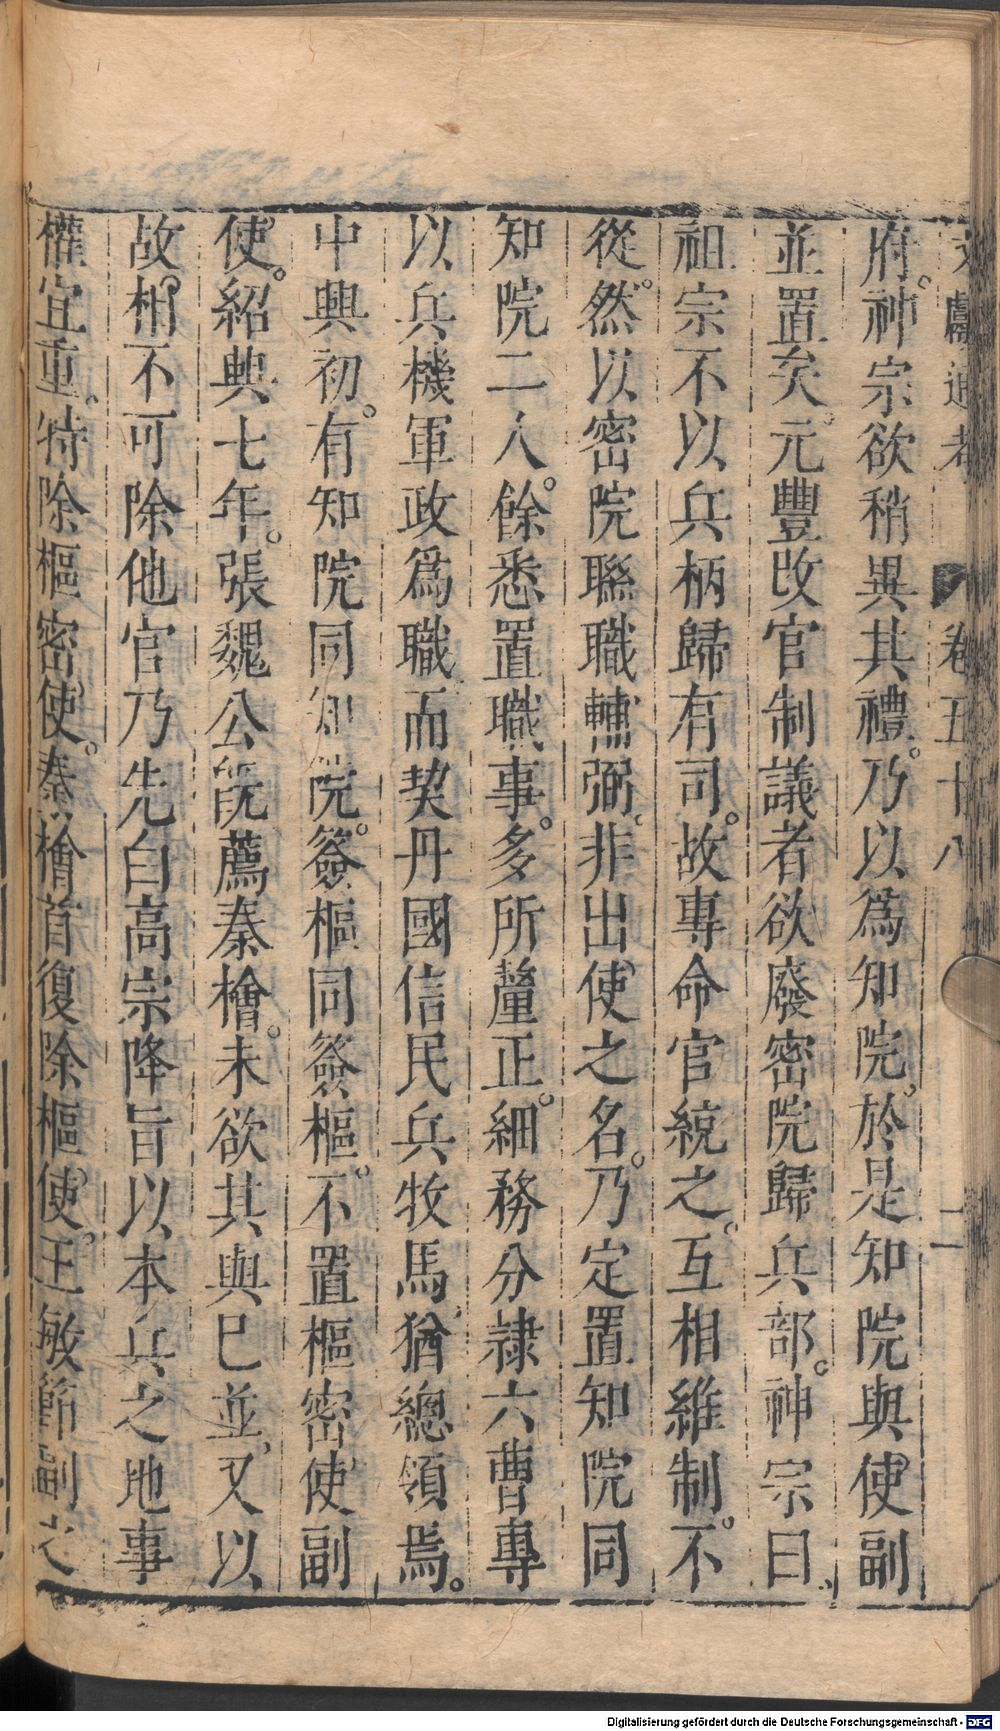 文獻通考 卷五十八 二
府。神宗欲稍異其禮。乃以爲知院，於是知院與使副
並置矣。元豐改官制議者欲廢密院歸兵部。神宗曰。
祖宗不以兵柄歸有司。故專命官統之。互相維制。不
從然。以密院聯職輔弼。非出使之名。乃定置知院同
知院二人。餘悉置職事。多所釐正。細務分隷六曹專
以兵機軍政爲職而契丹國信民兵牧馬，猶總領焉。
中興初。有知院同知院。簽樞同簽樞。不置樞密使副
使。紹興七年。張魏公旣薦秦檜。未欲其與巳並，又以
故相不可除他官乃先白高宗降旨以本兵之地事
權宜重，特除樞密使。秦檜首復除樞使。王敏節副之
Digitalisierung gefördert durch die Deutsche Forschungsgemeinschaft - DFG